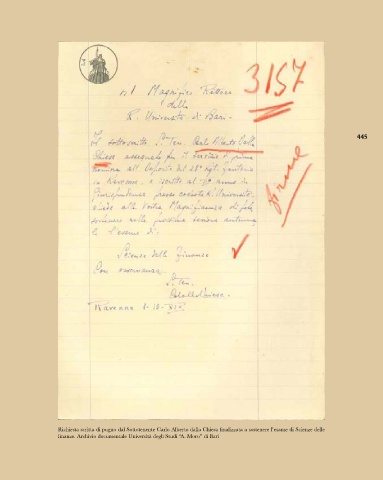 3157
Al Magnifico Rettore
della
R. Università di Bari.
445
Il sottoscritto S. Ten. Carlo Alberto Dalla
Chiesa assegnato per il servizio di prima
nomina al Deposito del 28° regt. fanteria
in Ravenna, e iscritto al anno in
Giurisprudenza presso codesta R. Università,
chiede alla Vostra Magnificenza di
sostenere nella prossima sessione autunnale
l'esame di:
Firme
Scienza delle Finanze
Con osservanza.
S. Ten.
Dalla Chiesa
Ravenna
Richiesta scritta di pugno dal Sottotenente Carlo Alberto dalla Chiesa finalizzata a sostenere l'esame di Scienze delle
finanze. Archivio documentale Università degli Studi "A. Moro" di Bari